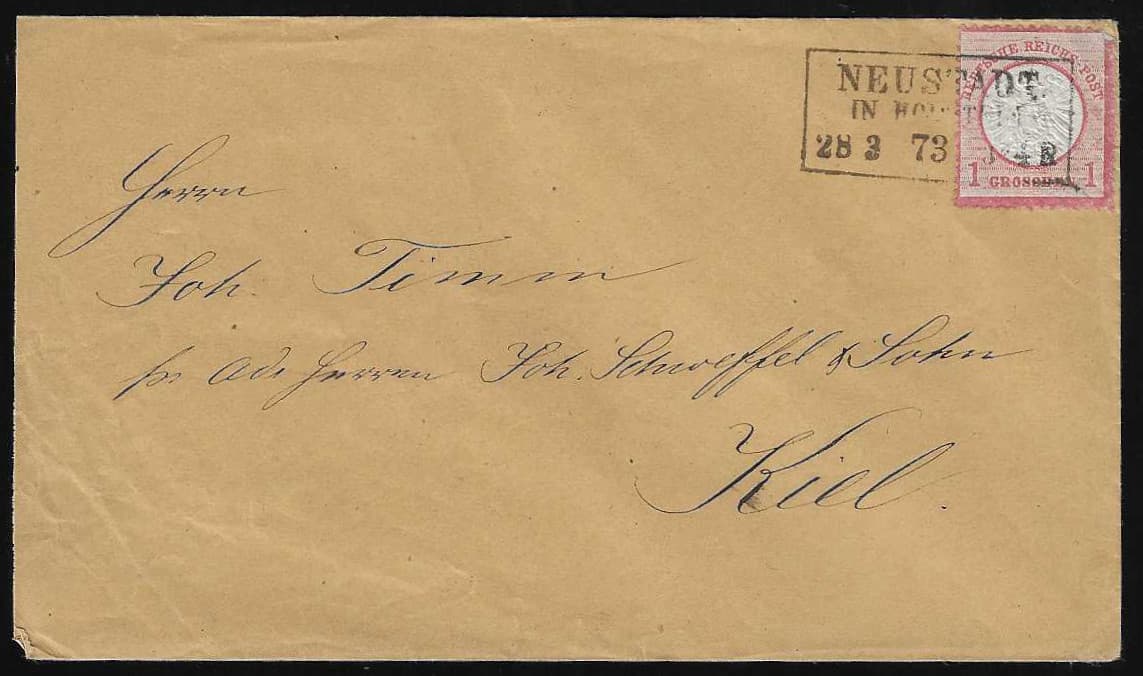 NEUSTADT.
IN HOLSTEIN
28 3 73 3-4 N
DEUTSCHE REICHS-POST
1 GROSCHEN 1
Herrn
Joh. Timm
Adr Herren Joh. Schweffel & Sohn
Kiel.